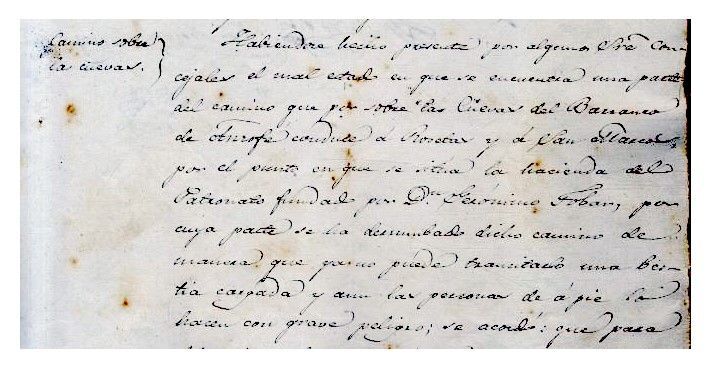 Camino sobre
las cuevas.
Habiendose hecho presente por algunos Sres Con-
cejales el mal estado en que se encuentra una parte
del camino que por sobre las Cuevas del Barranco
de Anrofe conduce á Rosetas y á San Marcos,
por el punto en que se sitúa la hacienda del
Patronato fundado por Dn Gerónimo Tobar, por
cuya parte se ha derrumbado dicho camino de
manera que ya no puede transitarlo una bes-
tia cargada y aun las personas de á pie lo
hacen con grave peligro; se acordó: que para